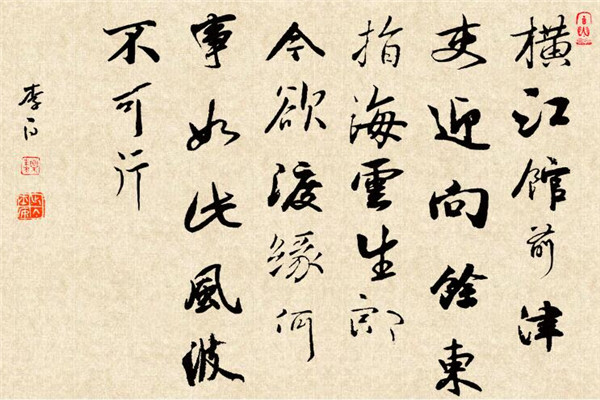 横江館前津
吏迎向餘東
指海雲生郎
今欲渡緣何
事如此風波
不可行
李白